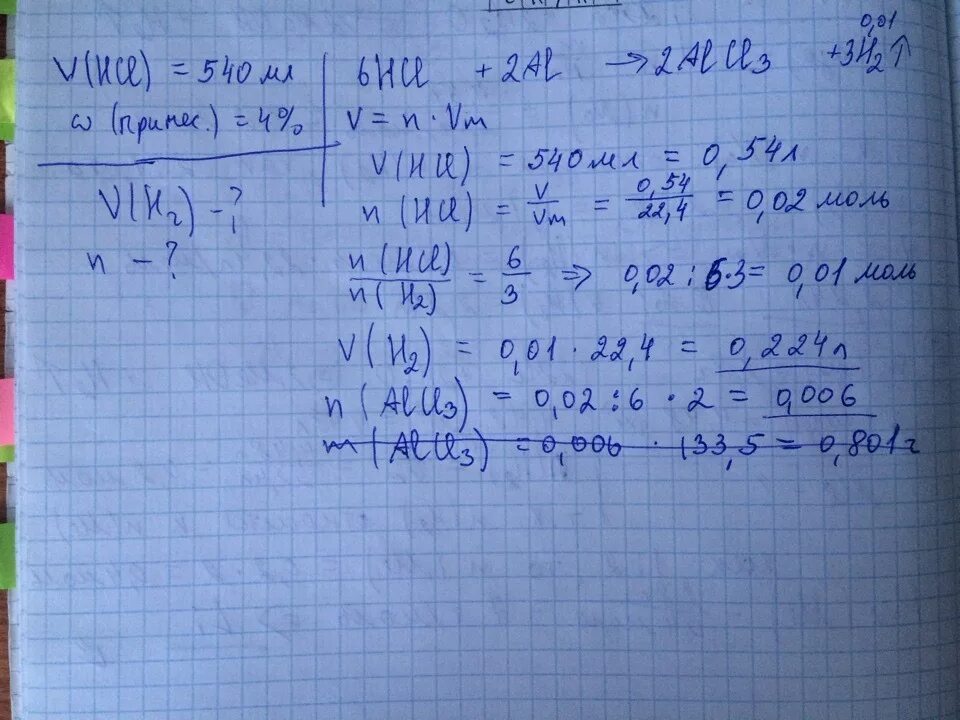 V(HCl) = 540 мл
ω (примес.) = 4%
V(H₂) - ?
n - ?
0,01
6HCl + 2Al → 2AlCl₃ + 3H₂↑
V = n · Vm
V(HCl) = 540 мл = 0,54л
n (HCl) = V/Vm = 0,54/22,4 = 0,02 моль
n(HCl)/n(H₂) = 6/3 ⇒ 0,02 : 6·3 = 0,01 моль
V(H₂) = 0,01 · 22,4 = 0,224л
n (AlCl₃) = 0,02 : 6 · 2 = 0,006
m (AlCl₃) = 0,006 · 133,5 = 0,801г